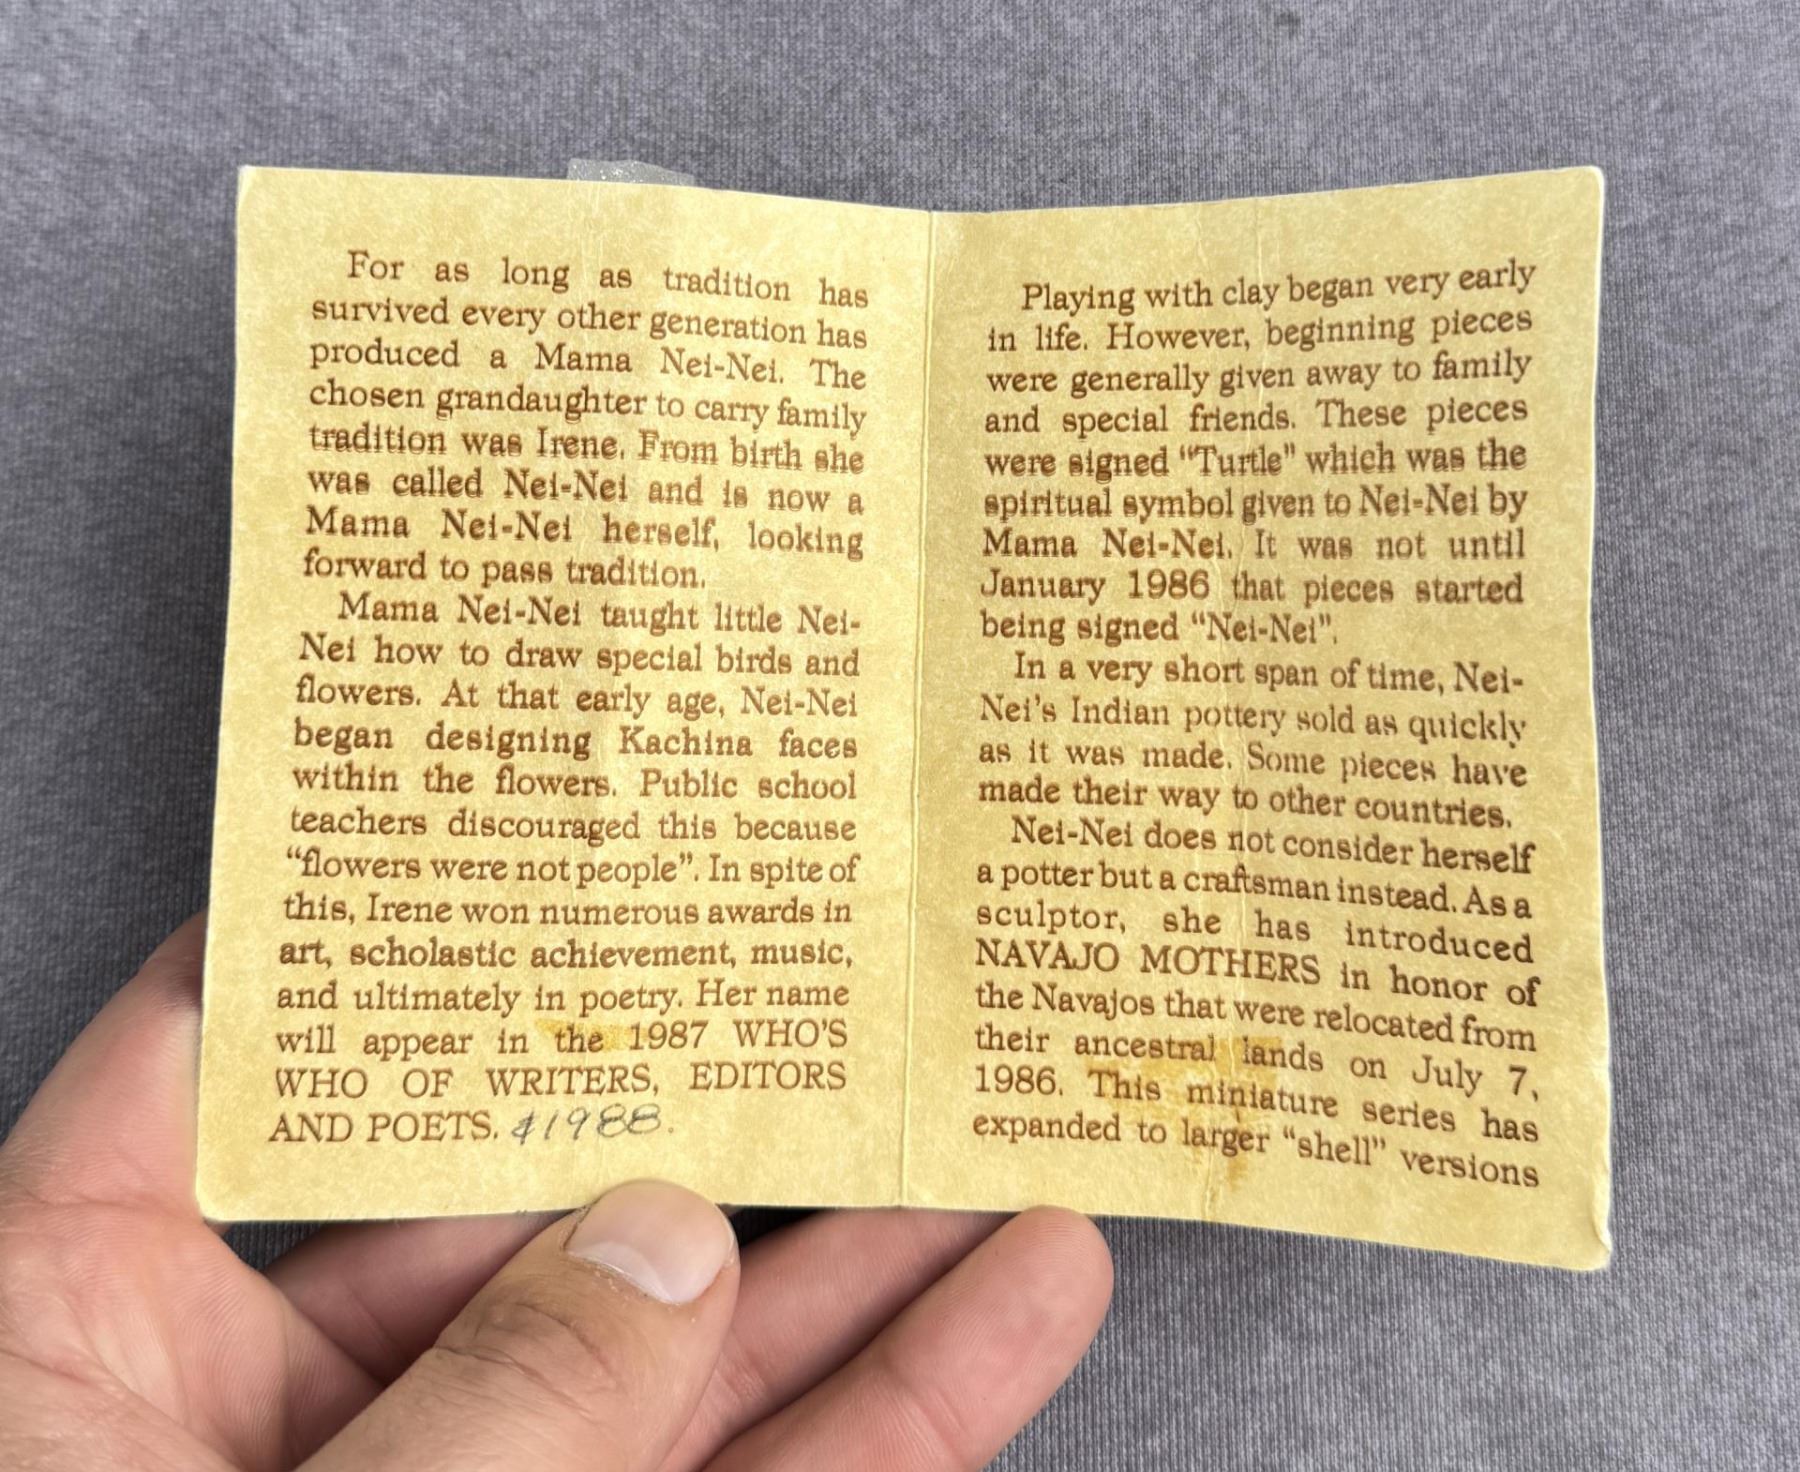 For as long as tradition has
survived every other generation has
produced a Mama Nei-Nei. The
chosen grandaughter to carry family
tradition was Irene. From birth she
was called Nei-Nei and is now a
Mama Nei-Nei herself, looking
forward to pass tradition.
Mama Nei-Nei taught little Nei-
Nei how to draw special birds and
flowers. At that early age, Nei-Nei
began designing Kachina faces
within the flowers. Public school
teachers discouraged this because
“flowers were not people”. In spite of
this, Irene won numerous awards in
art, scholastic achievement, music,
and ultimately in poetry. Her name
will appear in the 1987 WHO'S
WHO OF WRITERS, EDITORS
AND POETS. & 1988.
Playing with clay began very early
in life. However, beginning pieces
were generally given away to family
and special friends. These pieces
were signed “Turtle” which was the
spiritual symbol given to Nei-Nei by
Mama Nei-Nei. It was not until
January 1986 that pieces started
being signed “Nei-Nei”.
In a very short span of time, Nei-
Nei's Indian pottery sold as quickly
as it was made. Some pieces have
made their way to other countries.
Nei-Nei does not consider herself
a potter but a craftsman instead. As a
sculptor, she has introduced
NAVAJO MOTHERS in honor of
the Navajos that were relocated from
their ancestral lands on July 7,
1986. This miniature series has
expanded to larger “shell” versions